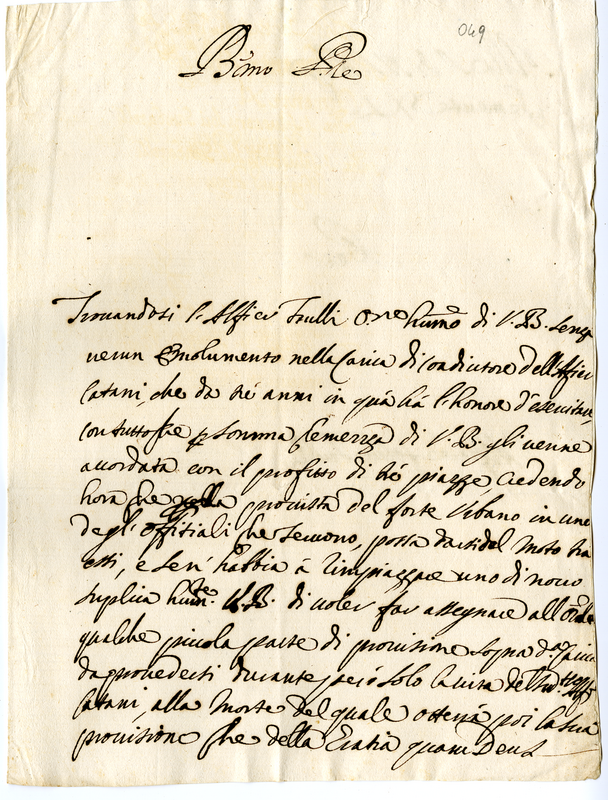 049
B.mo P.re
Trovandosi l'Alfier Trulli O.re hum.o di V. B. senza
verun Emolumento nella Carica di Coadiutore dell'Alfier
Catani, che da tré anni in quà hà l'honore d'esercitare,
con tutto che p somma Clemenza di V. B. gli venne
accordata con il profitto di tré piazze credendo
hora che nella provista del forte Urbano in uno
degl'offitiali che servono, possa darsi del moto tra
essi, e sen' habbia à rimpiazzare uno di novo
supplica hum.te V. B. di voler far assegnare all'Ore
qualche piccola parte di provisione sopra d.a Carica
da provedersi durante però solo la vita del sud.o Alfier
Catani, alla Morte del quale otterrà poi la sua
provisione Che della Gratia quam Deus